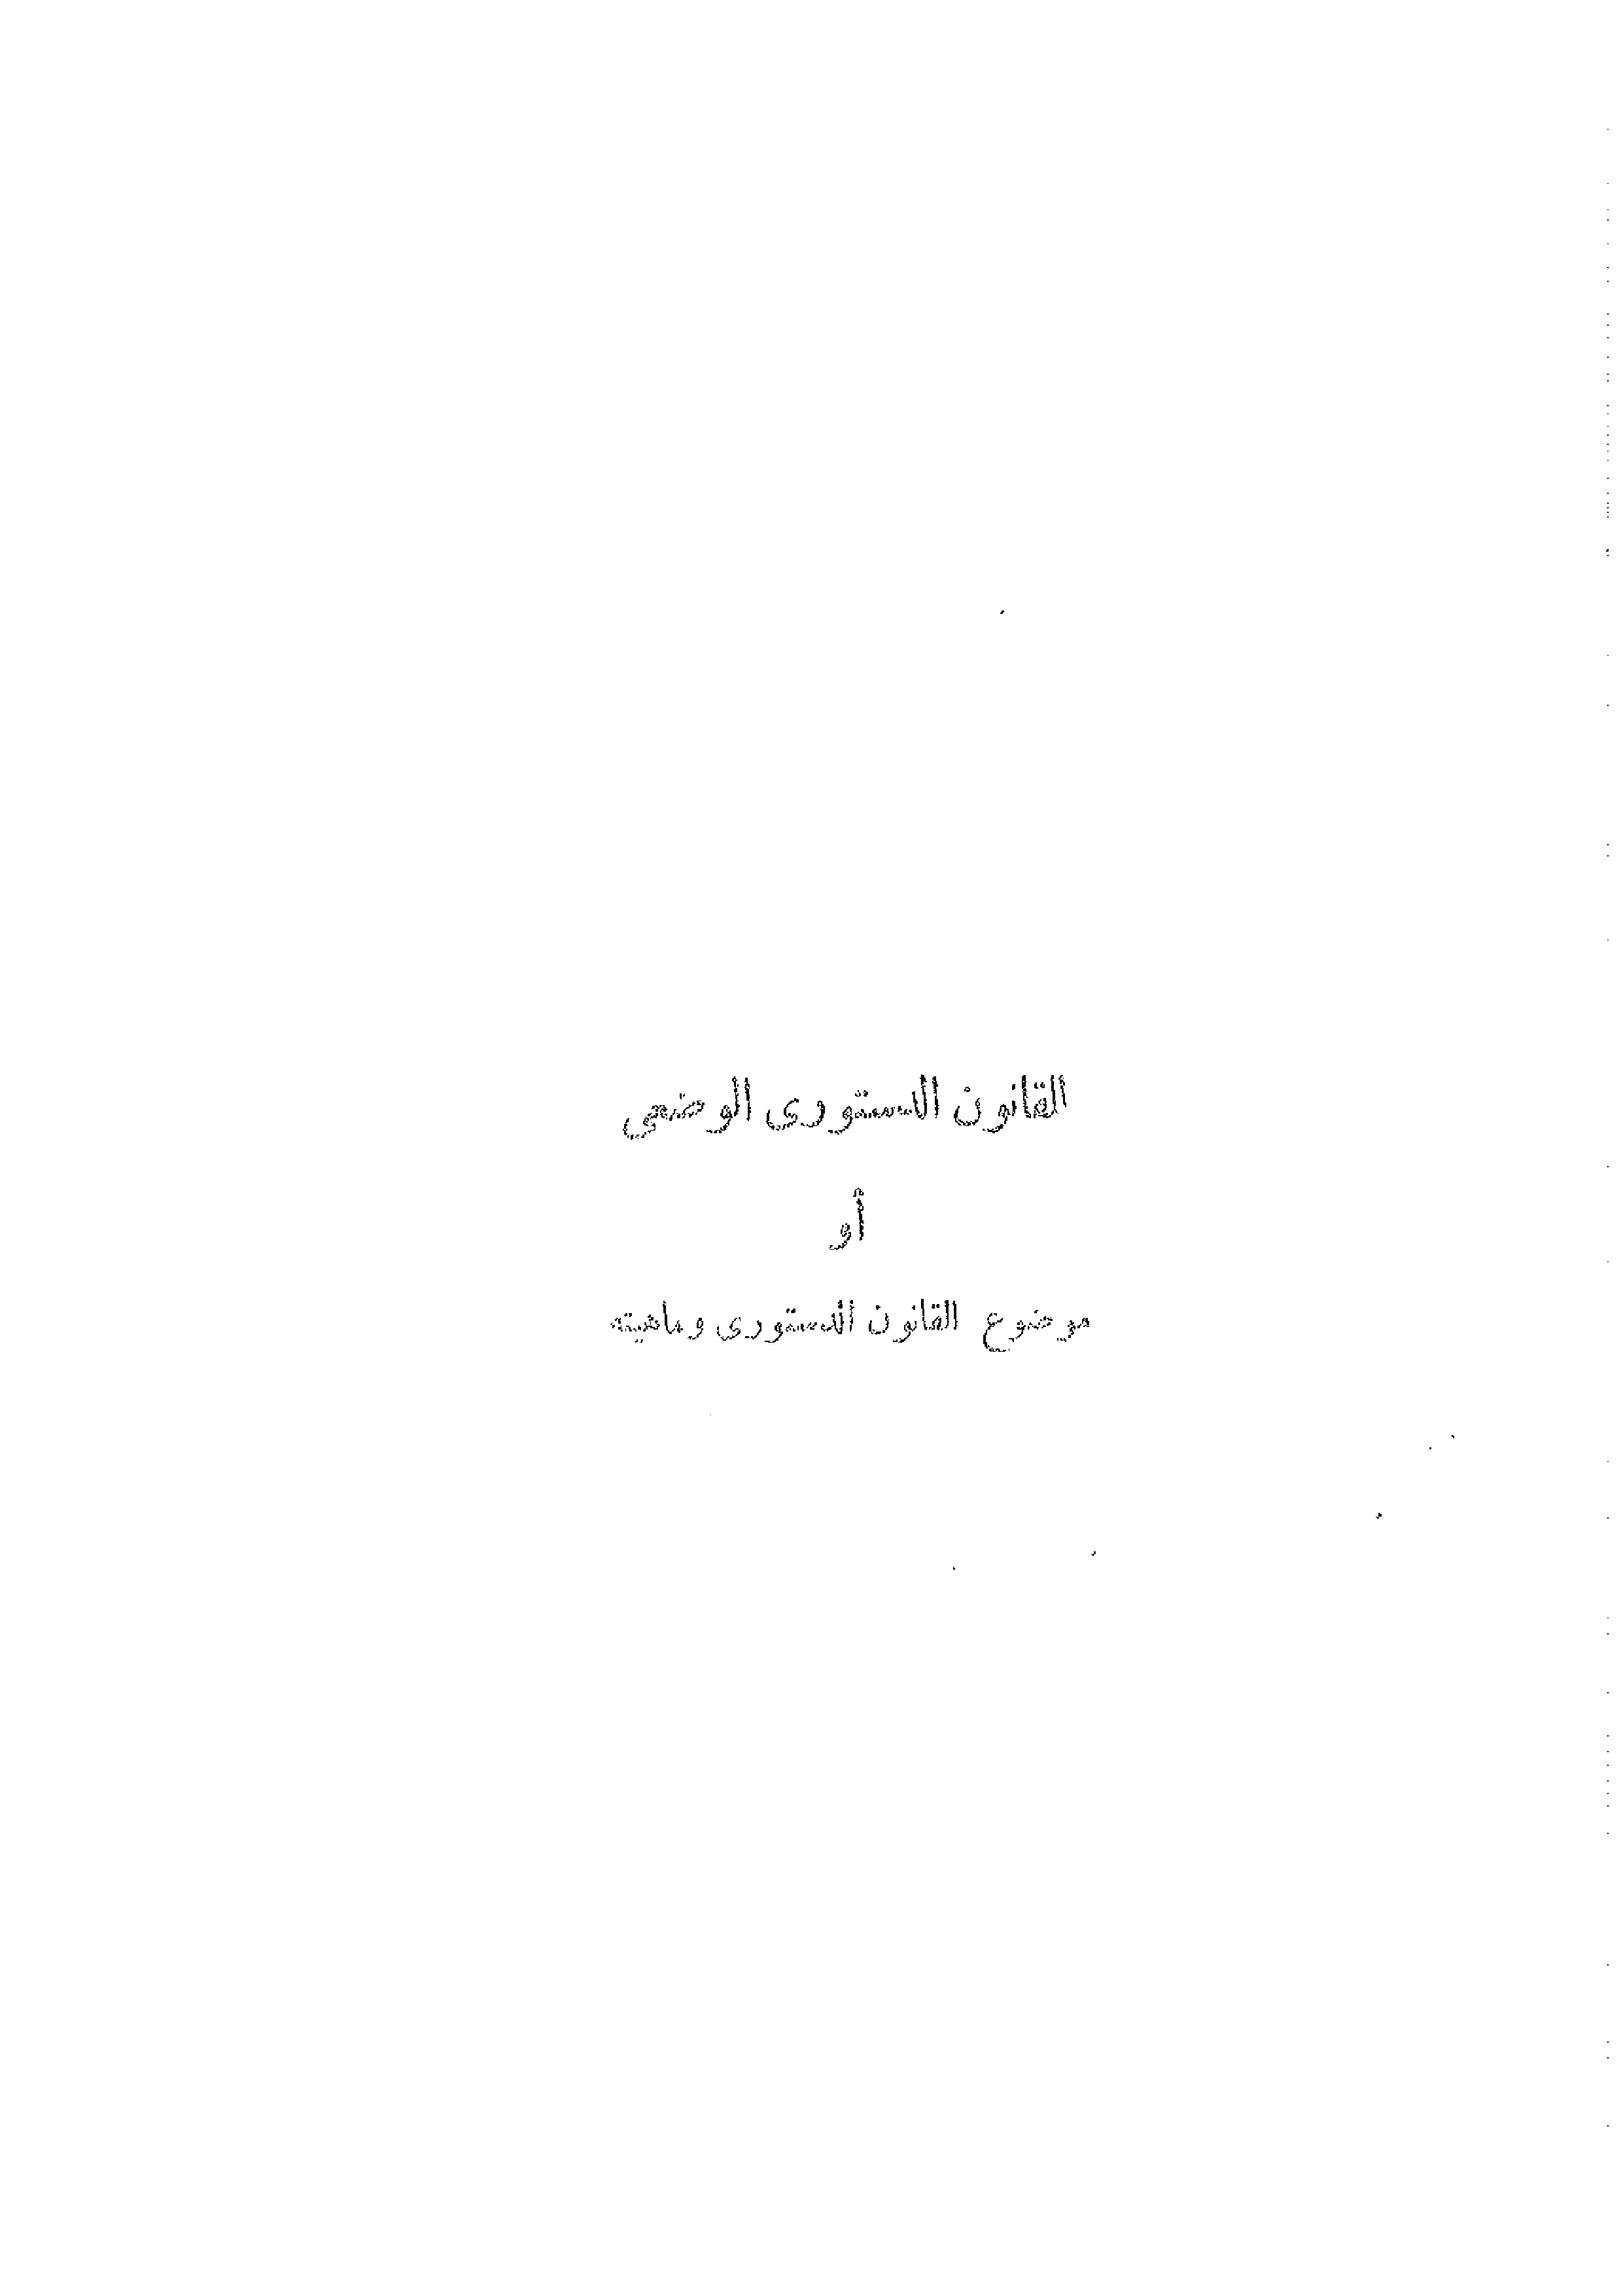 القانون الدستورى الوضعى
أو
موضوع القانون الدستورى وماهيته